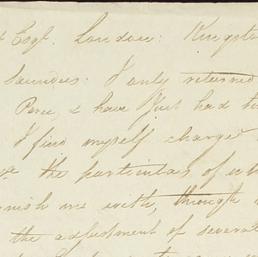 Esqr. London: Kingston
Saunders: I only returned
Peru, & have just had
I find myself charged
the particulars of
me with, through
the adjustment of several